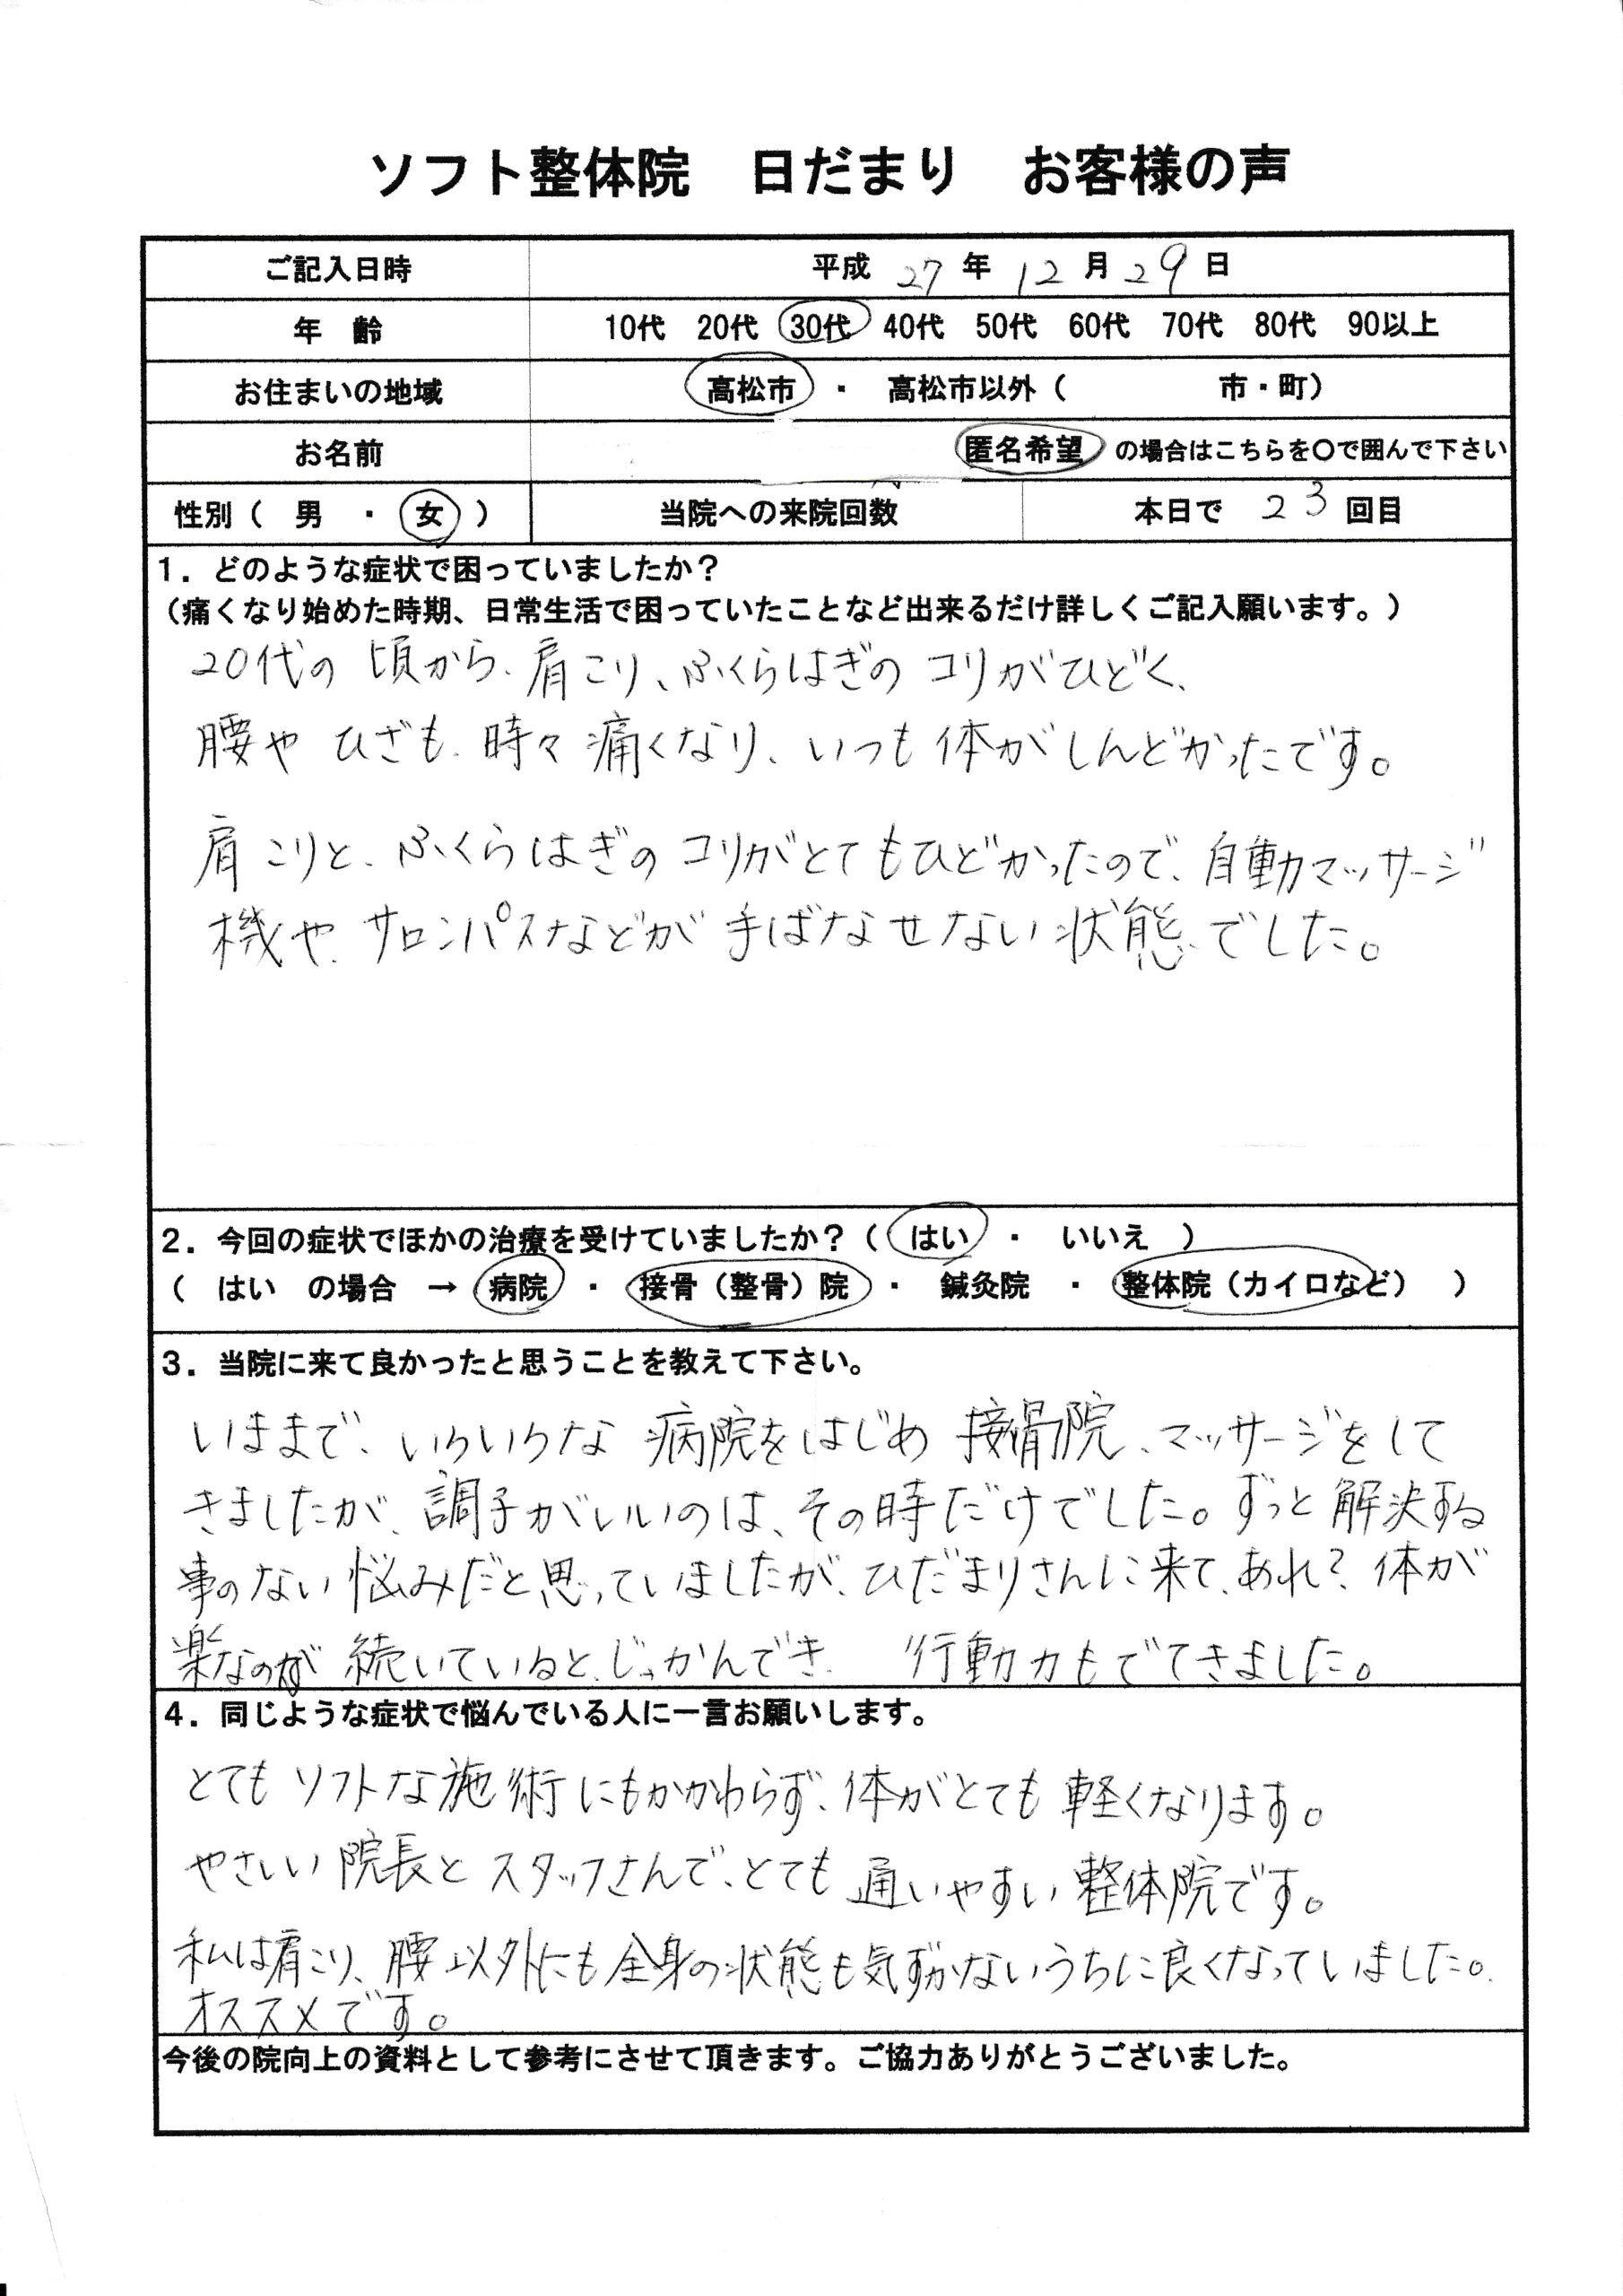 ソフト整体院 日だまり お客様の声
ご記入日時 平成 27 年 12 月 29 日
年 齢 10代 20代 30代 40代 50代 60代 70代 80代 90以上
お住まいの地域 高松市 ・ 高松市以外( 市・町)
お名前 匿名希望 の場合はこちらを〇で囲んで下さい
性別( 男 ・ 女 ) 当院への来院回数 本日で 23 回目
1.どのような症状で困っていましたか?
(痛くなり始めた時期、日常生活で困っていたことなど出来るだけ詳しくご記入願います。)
20代の頃から、肩こり、ふくらはぎのコリがひどく、
腰や ひざも、時々痛くなり、いつも体がしんどかったです。
肩こりと、ふくらはぎのコリがとてもひどかったので、自動マッサージ
機や、サロンパスなどが手ばなせない状態でした。
2.今回の症状でほかの治療を受けていましたか?( はい ・ いいえ )
( はい の場合 → 病院 ・ 接骨(整骨)院 ・ 鍼灸院 ・ 整体院(カイロなど) )
3.当院に来て良かったと思うことを教えて下さい。
いままで、いろいろな 病院をはじめ 接骨院、マッサージをして
きましたが、調子がいいのは、その時だけでした。ずっと解決する
事のない悩みだと思っていましたが、ひだまりさんに来て、あれ?体が
楽なのが 続いていると、じっかんでき、 行動力もでてきました。
4.同じような症状で悩んでいる人に一言お願いします。
とてもソフトな施術にもかかわらず、体がとても軽くなります。
やさしい院長とスタッフさんで、とても通いやすい整体院です。
私は肩こり、腰以外にも全身の状態も気ずかないうちに良くなっていました。
オススメです。
今後の院向上の資料として参考にさせて頂きます。ご協力ありがとうございました。